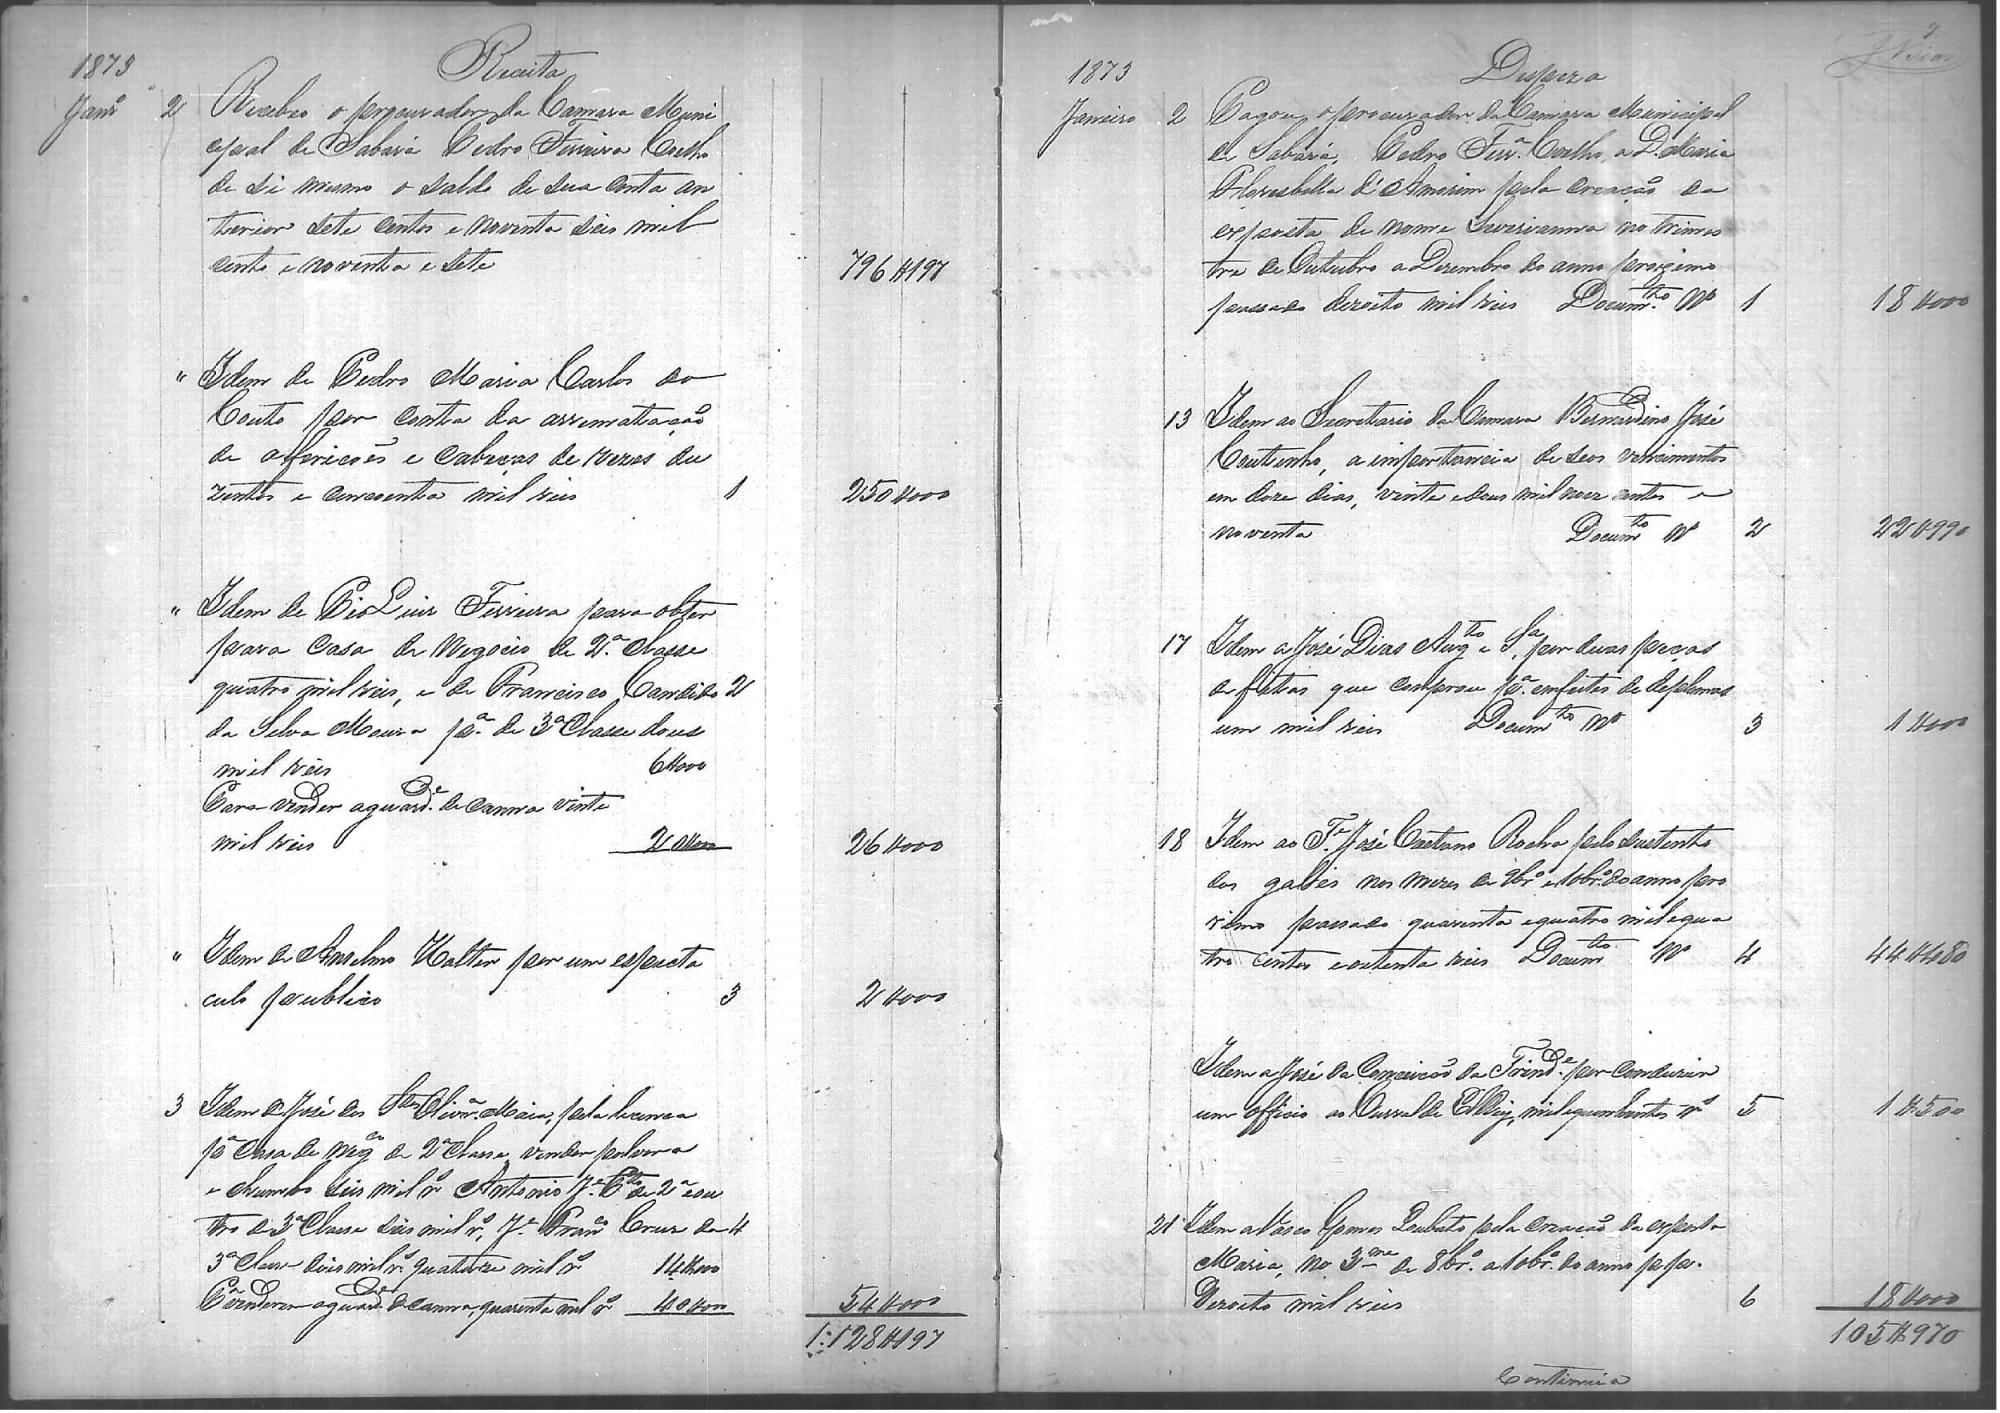 1873
Receita
Janrº 2 Recebeo o procurador da Camara Muni
cipal de Sabará Pedro Ferreira Coelho
de si mesmo o saldo de sua conta an
terior sete centos e noventa seis mil
cento e noventa e sete 796$197
" Idem de Pedro Maria Carlos do
Couto por conta da arrematação
de afericões e cabeças de rezes du
zentos e cincoenta mil reis 1 250$000
" Idem de Pio Luiz Ferreira para obter
para casa de Negocio de 2ª Classe
quatro mil reis, e de Francisco Candido 2
da Silva Moura pª. de 3ª Classe dous
mil reis 6$000
Para vender aguardᵉ. de canna vinte
mil reis 20$000 26$000
" Idem de Anselmo Walter por um especta
culo publico 3 2$000
3 Idem de José dos Stos Olivrª. Maia, pela licença
pª casa de negco de 2ª Classe, vender polvora
e chumbo seis mil rs Antonio Je. Cto de 2ª e ou
tro de 3ª Classe seis mil rs, Je. Franco Cruz da 4
3ª Classe dois mil rs. quatorze mil rs 14$000
Pª venderem aguardes de canna, quarenta mil rs 40$000 54$000
1:128$197
1873
Despeza
Janeiro 2 Pagou o procurador da Camara Municipal
de Sabará, Pedro Ferrª. Coelho, a D. Maria
Florisbella d'Amorim pela creação da
exposta de nome Severianna no trimes
tre de Outubro a Dezembro do anno proximo
passado dezoito mil reis Documto. Nº 1 18$000
13 Idem ao Secretario da Camara Bernardino José
Coutinho, a importancia de seos vencimentos
em doze dias, vinte e dous mil nove centos e
noventa Documto Nº 2 22$990
17 Idem a José Dias Augto e Sª, por duas peças
de fitas que comprou pª. enfeites de deplomas
um mil reis Documto Nº 3 1$000
18 Idem ao Te. José Caetano Rocha pelo sustento
dos galés nos mezes de 9brº e 10brº do anno pro
ximo passado quarenta e quatro mil e qua
tro centos e oitenta reis Documto Nº 4 44$480
Idem a José da Conceicão da Trinde. por conduzir
um officio ao Curral de El Rey, mil e quinhentos rs 5 1$500
21 Idem a Vasco Gomes Loubato pela creação da exposta
Maria, no 3me de 8brº. a 10brº. do anno p. pº.
Dezoito mil reis 6 18$000
105$970
Continúa